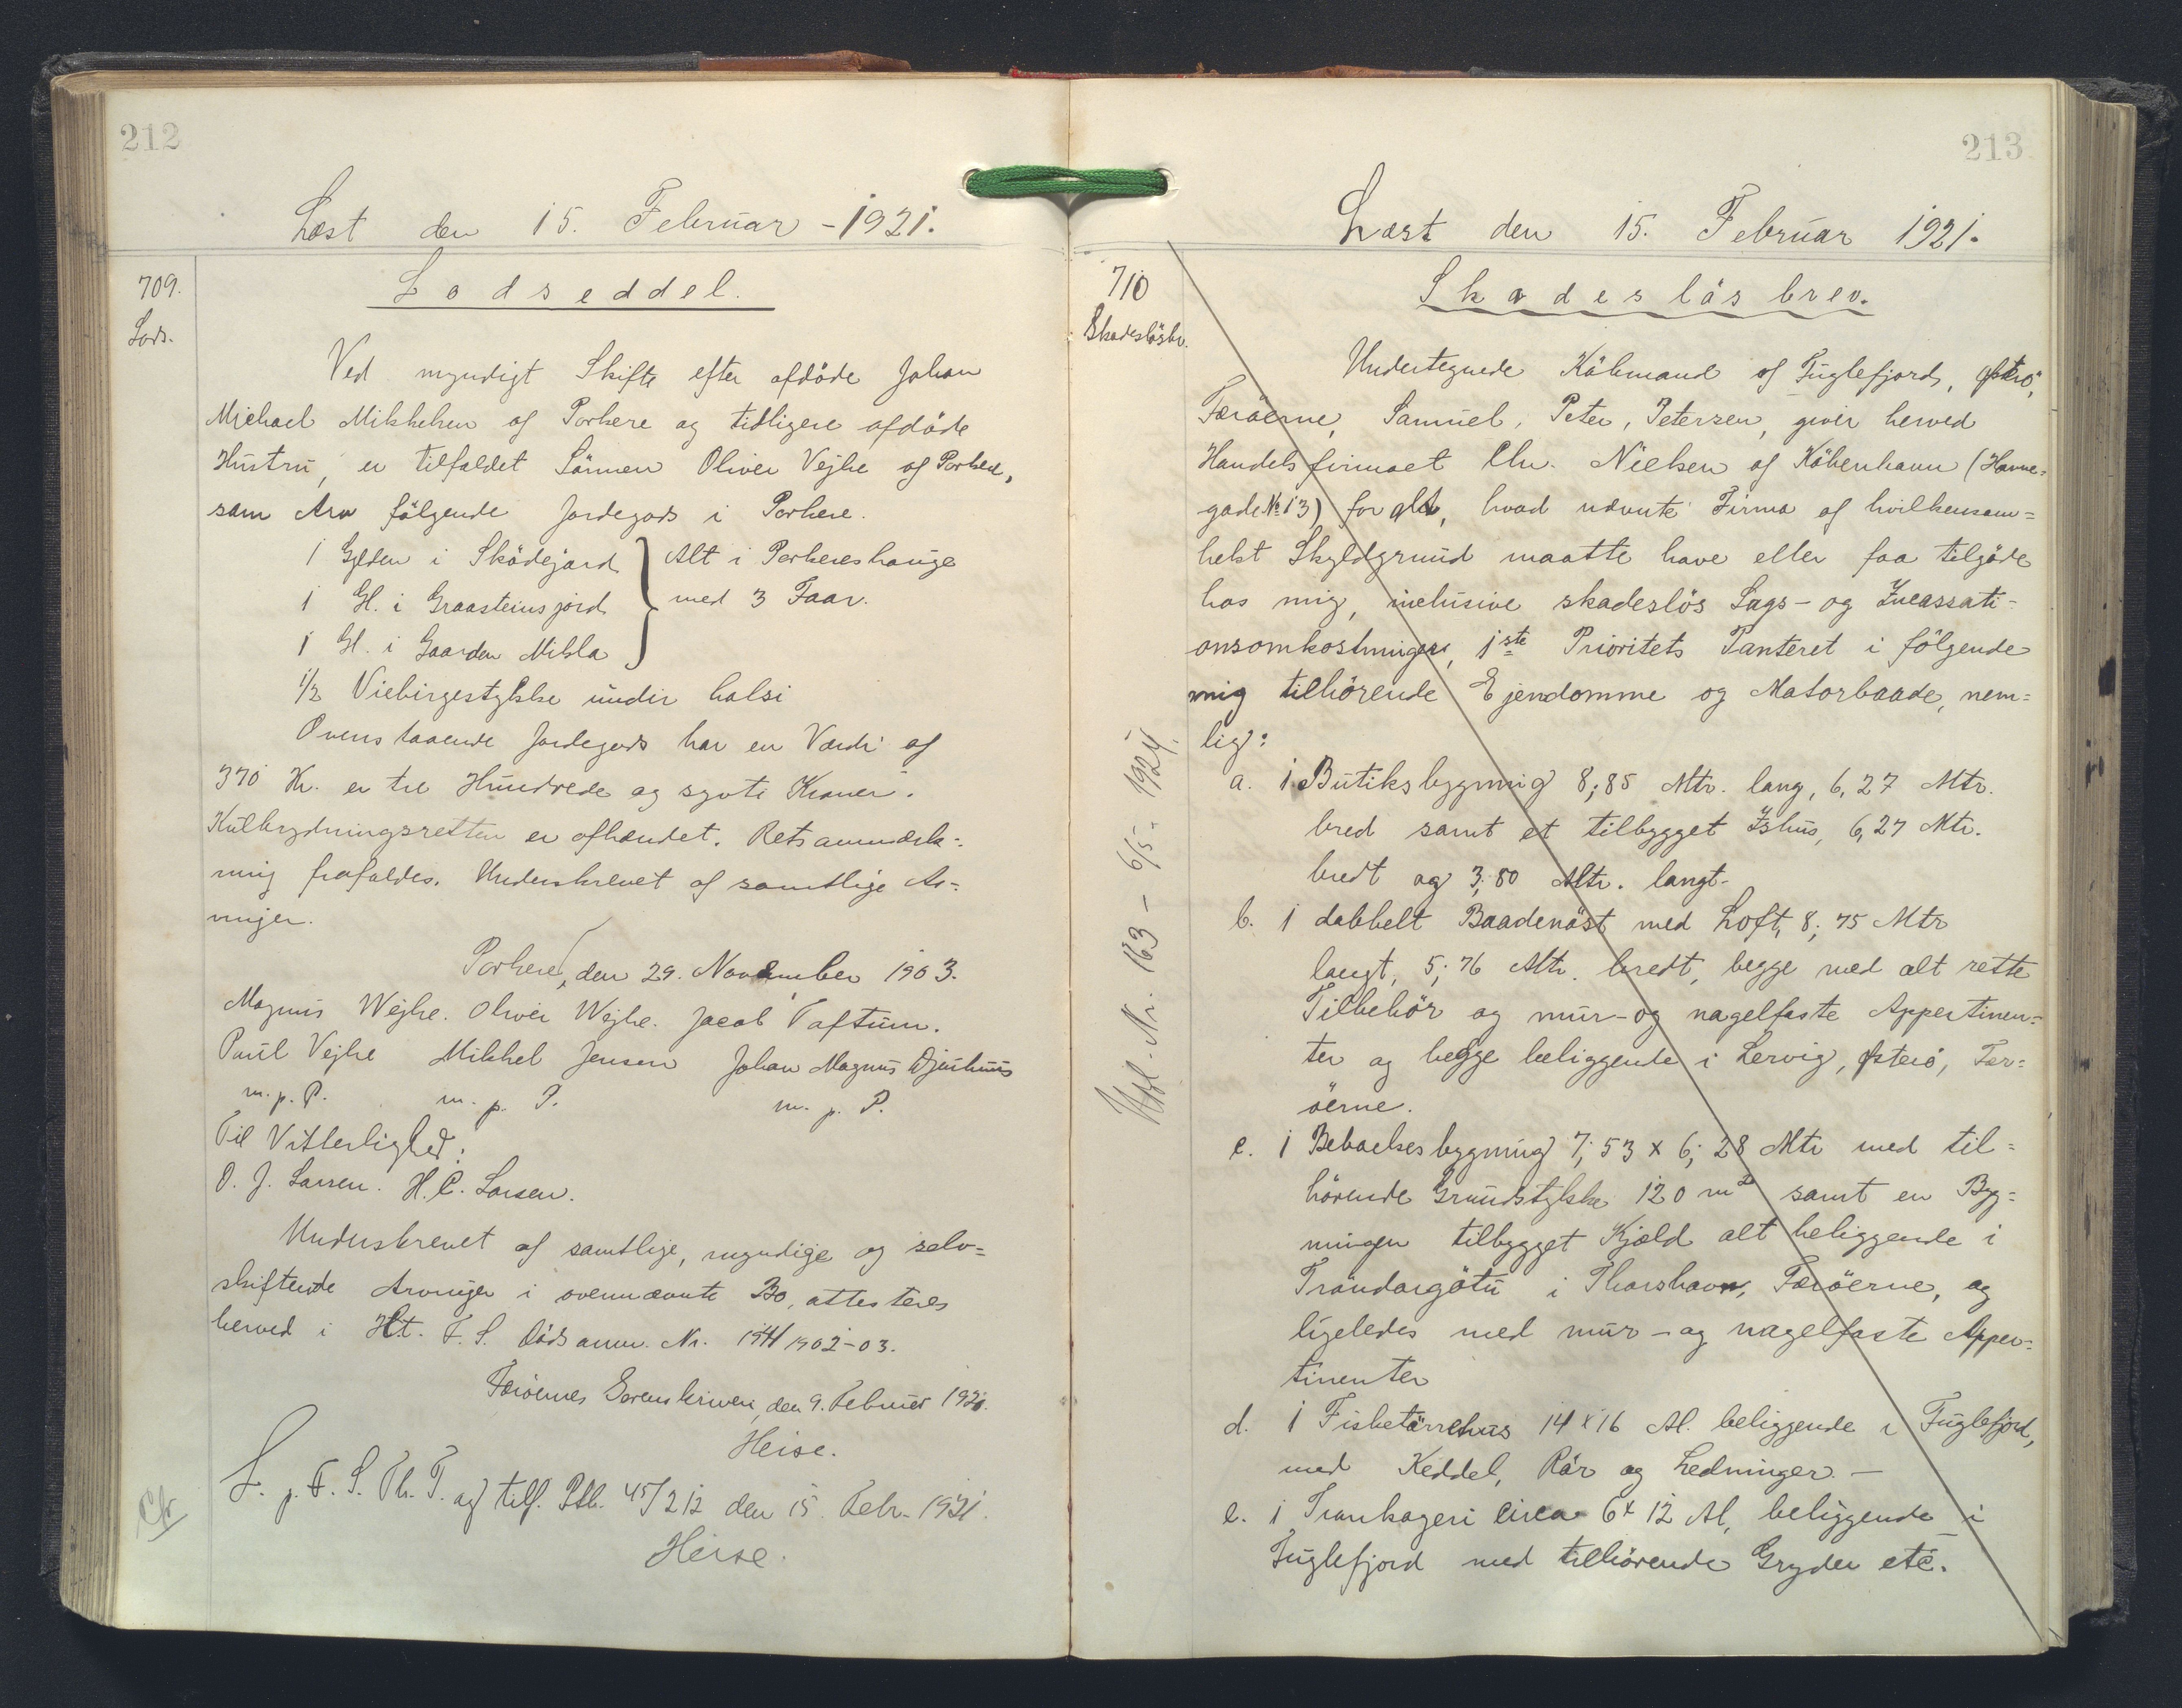 212
Læst den 15. Februar - 1921.
709.
Lods.
Lodseddel.
Ved myndigt Skifte efter afdöde Johan
Michael Mikkelsen af Porkere og tidligere afdöde
Hustru, er tilfaldet Sönnen Oliver Vejhe af Porkere,
som Arv fölgende Jordegods i Porkere.
1 Gylden i Sködejord } Alt i Porkereshauge
1 Gl. i Graasteinsjord } med 3 Faar.
1 Gl. i Gaarden Mikla
1/2 Viebirgestykke under halsi
Ovenstaaende Jordegods har en Værdi af
370 Kr. er tre Hundrede og syvti Kroner.
Kulbrydningsretten er afhændet. Retsanmeldel=
ning frafaldes. Underskrevet af samtlige Ar=
vinger.
Porkere, den 29. November 1903.
Magnus Wejhe. Oliver Wejhe. Jacob Toftum.
Paul Vejhe Mikkel Jensen Johan Magnus Djurhuus
m. p. P. m. p. P. m. p. P.
Til Vitterlighed:
O. J. Larsen. H. C. Larsen.
Underskrevet af samtlige, myndige og selv=
skiftende Arvinger i ovennævnte Bo, attesteres
herved i Ht. F. S. Dödsanm. Nr. 1902-03.
Færöernes Sorenskriveri, den 9. Februar 1921.
Heise.
L. p. F. S. Th. T. og tilf. Ptb. 45/212 den 15. Febr. 1921.
Heise.
Cfr
213
Læst den 15. Februar 1921.
710
Skadeslösbr.
Skadeslösbrev.
Undertegnede Köbmand af Fuglefjord, Østerö,
Færöerne, Samuel, Peter, Petersen, giver herved
Handelsfirmaet Chr. Nielsen af Köbenhavn (Havne=
gade No 13) for alt, hvad nævnte Firma af hvilkensom=
helst Skyldgrund maatte have eller faa tilgode
hos mig, inclusive skadeslös Sags- og Incassati=
onsomkostninger, 1ste Prioritets Panteret i fölgende
mig tilhörende Ejendomme og Motorbaade, nem=
lig:
a. 1 Butiksbygning 8,85 Mtr. lang, 6,27 Mtr.
bred samt et tilbygget Ishus, 6,27 Mtr.
bredt og 3,80 Mtr. langt.
b. 1 dobbelt Baadenöst med Loft, 8,75 Mtr
langt, 5,76 Mtr. bredt, begge med alt rette
Tilbehör og mur- og nagelfaste Appertinen=
ter og begge beliggende i Lervig, Østerö, Fær=
öerne.
c. 1 Beboelsesbygning 7,53 x 6,28 Mtr med til=
hörende Grundstykke 120 m2 samt en Byg=
ningen tilbygget Kjæld alt beliggende i
Tróndargötu i Thorshavn, Færöerne, og
ligeledes med mur- og nagelfaste Apper=
tinenter
d. 1 Fisketörrehus 14 x 16 Al. beliggende i Fuglefjord,
med Keddel, Rör og Ledninger. -
e. 1 Trankogeri circa 6 x 12 Al, beliggende i
Fuglefjord med tilhörende Gryder etc.
Udsl. Nr. 163 - 6/5. 1924.